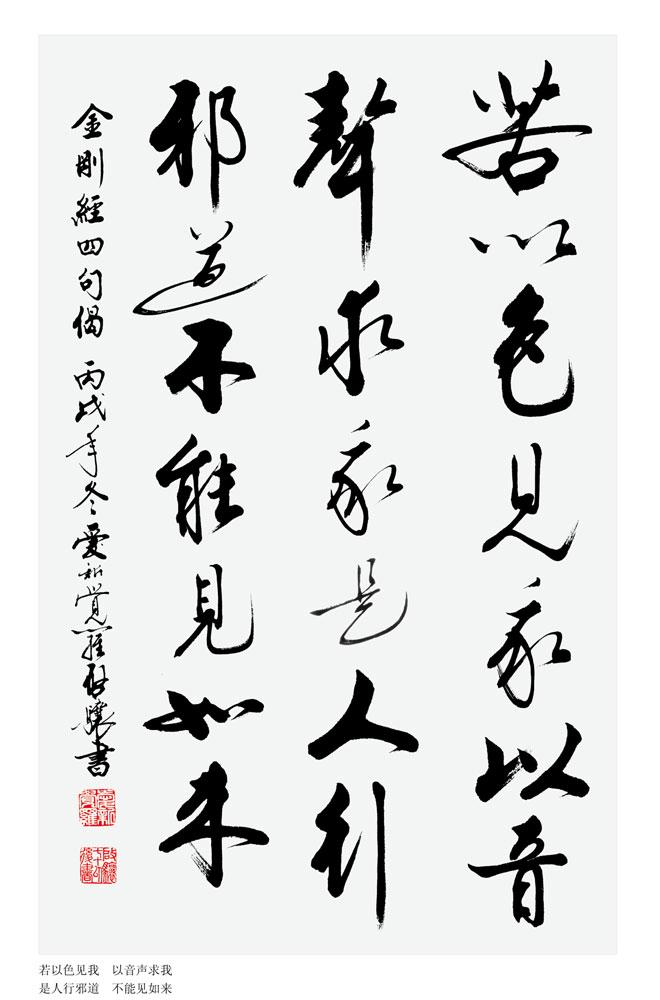 若以色见我以音
聲求我是人行
邪道不能見如来
金剛經四句偈 丙戌年冬愛新覺羅啟驤書
愛新覺羅
若以色见我 以音声求我
是人行邪道 不能见如来